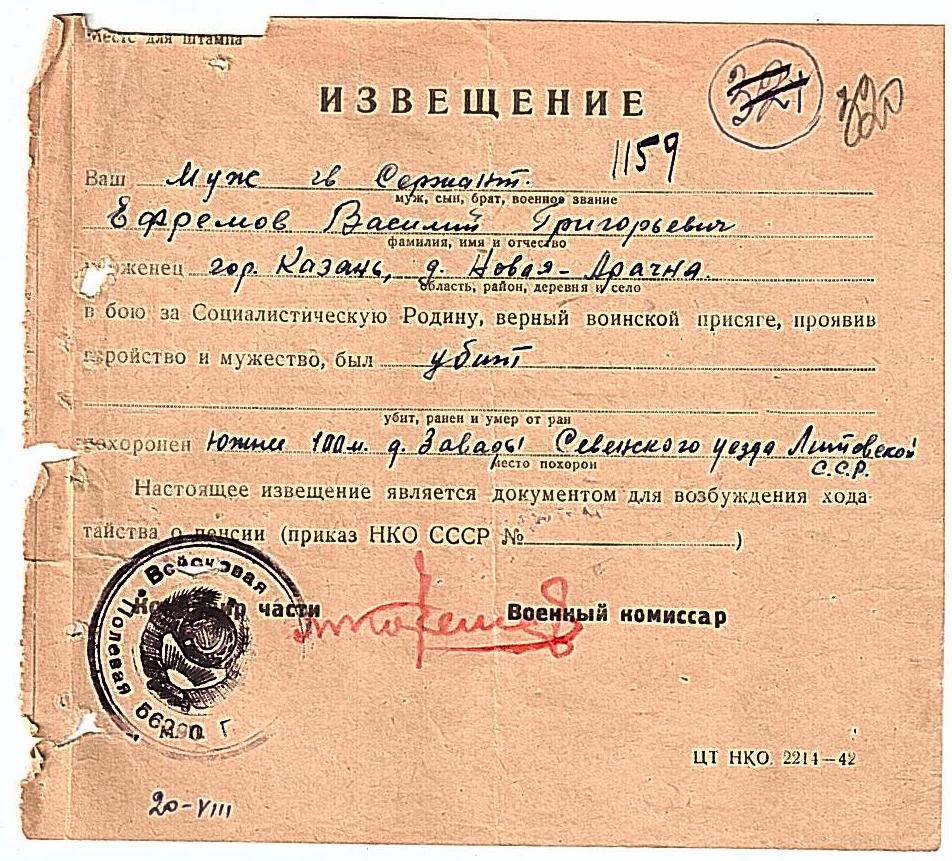 Место для штампа
321
320
ИЗВЕЩЕНИЕ
1159
Ваш Муж гв Сержант.
муж, сын, брат, военное звание
Ефремов Василий Григорьевич
фамилия, имя и отчество
уроженец гор. Казань, д. Новая-Арачна.
область, район, деревня и село
в бою за Социалистическую Родину, верный воинской присяге, проявив
геройство и мужество, был убит
убит, ранен и умер от ран
похоронен Южнее 100м. д. Завады Севенского уезда Литовской
С.С.Р.
место похорон
Настоящее извещение является документом для возбуждения хода-
тайства о пенсии (приказ НКО СССР № )
Командир части Военный комиссар
Войсковая
Полевая
ЦТ НКО. 2214—42
20-VIII